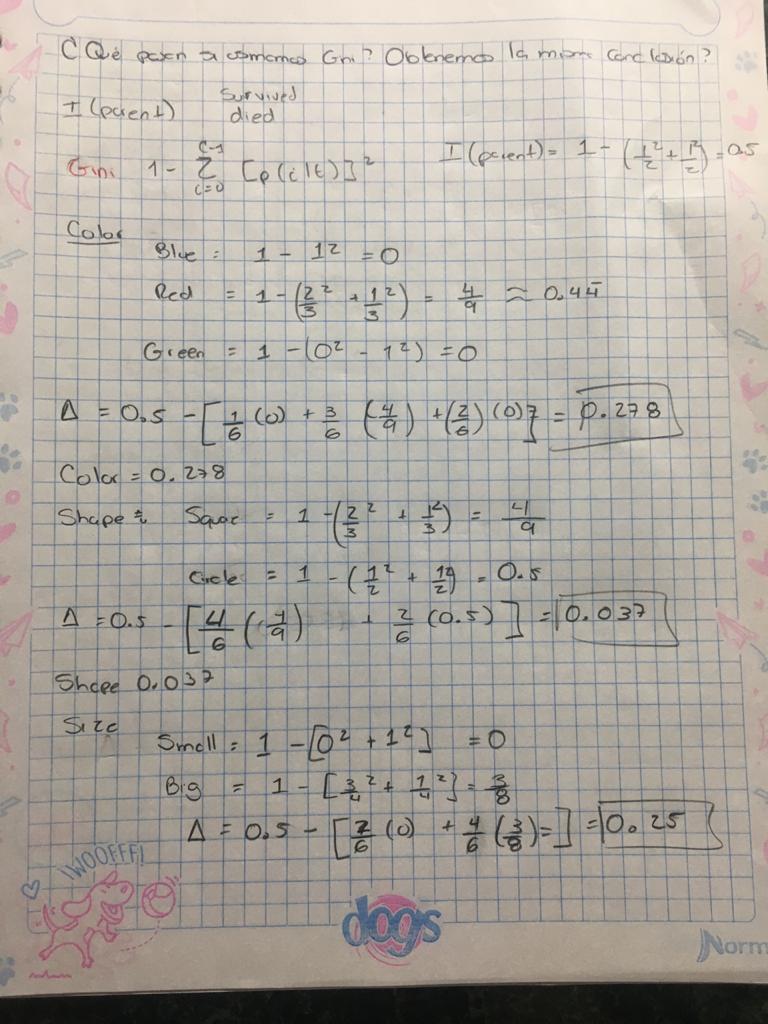 ¿Qué pasa si usamos Gini? Obtenemos la misma conclusión?
I(parent) survived
died
Gini 1 - Σ_{i=0}^{C-1} [p(i|t)]² I(parent) = 1 - (1/2² + 1/2²) = 0.5
Color
Blue = 1 - 1² = 0
Red = 1 - (2/3² + 1/3²) = 4/9 ≈ 0.44
Green = 1 - (0² - 1²) = 0
Δ = 0.5 - [1/6 (0) + 3/6 (4/9) + (2/6) (0)] = 0.278
Color = 0.278
Shape = Square = 1 - (2/3² + 1/3²) = 4/9
Circle = 1 - (1/2² + 1/2²) = 0.5
Δ = 0.5 - [4/6 (4/9) + 2/6 (0.5)] = 0.037
Shape 0.037
Size
Small = 1 - [0² + 1²] = 0
Big = 1 - [3/4² + 1/4²] = 3/8
Δ = 0.5 - [2/6 (0) + 4/6 (3/8) = ] = 0.25
¡WOOFFF!
dogs
Norm